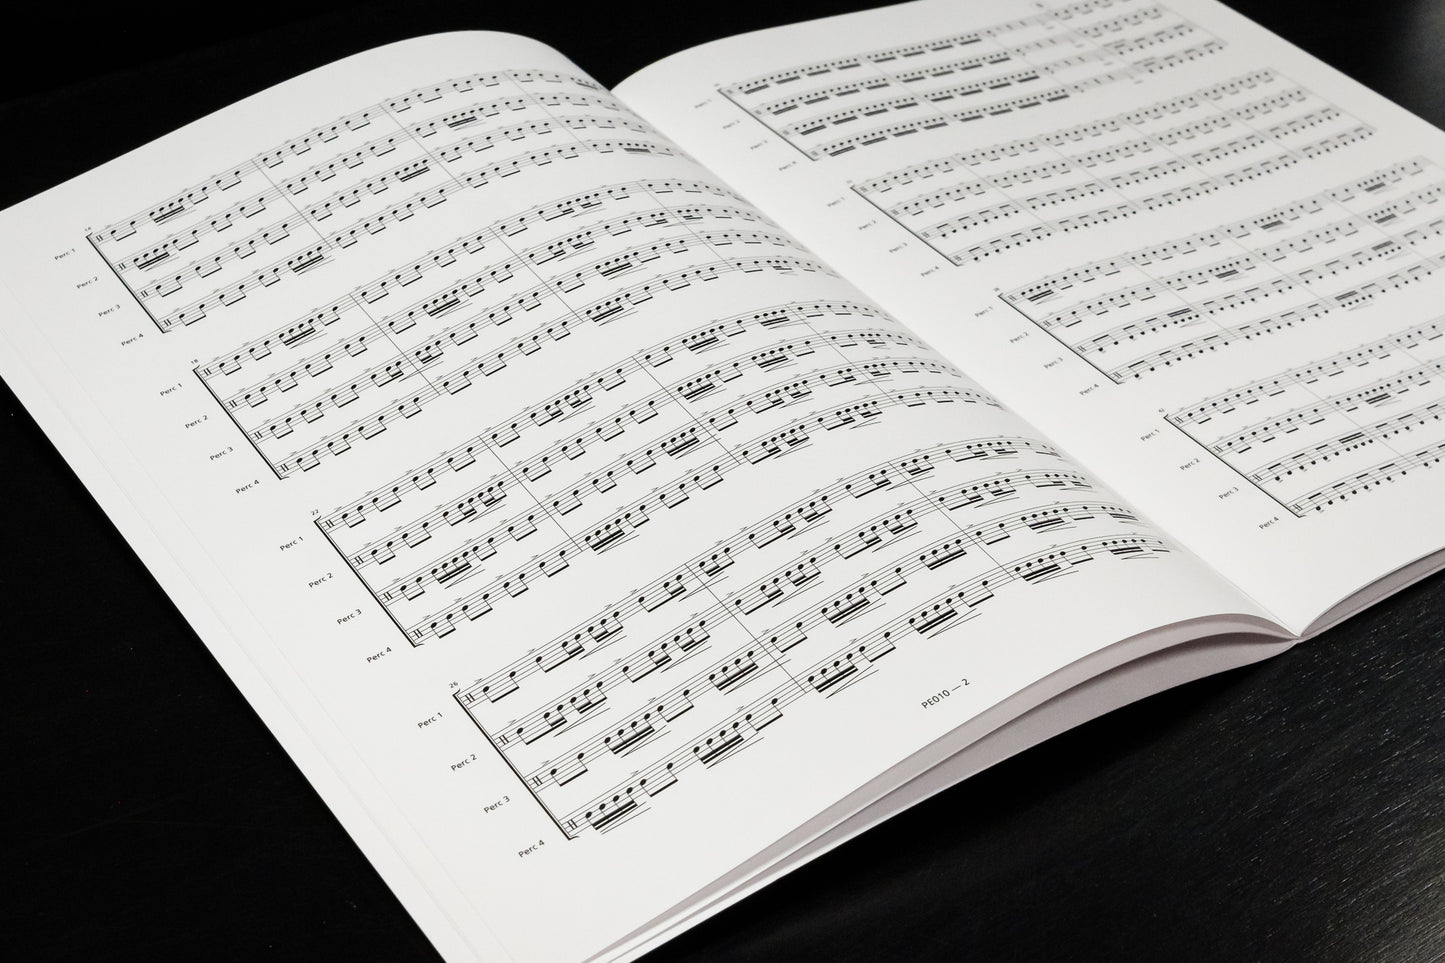 14
Perc 1
Perc 2
Perc 3
Perc 4
18
Perc 1
Perc 2
Perc 3
Perc 4
22
Perc 1
Perc 2
Perc 3
Perc 4
26
Perc 1
Perc 2
Perc 3
Perc 4
PE010 — 2
Perc 1
Perc 2
Perc 3
Perc 4
Perc 1
Perc 2
Perc 3
Perc 4
Perc 1
Perc 2
Perc 3
Perc 4
42
Perc 1
Perc 2
Perc 3
Perc 4